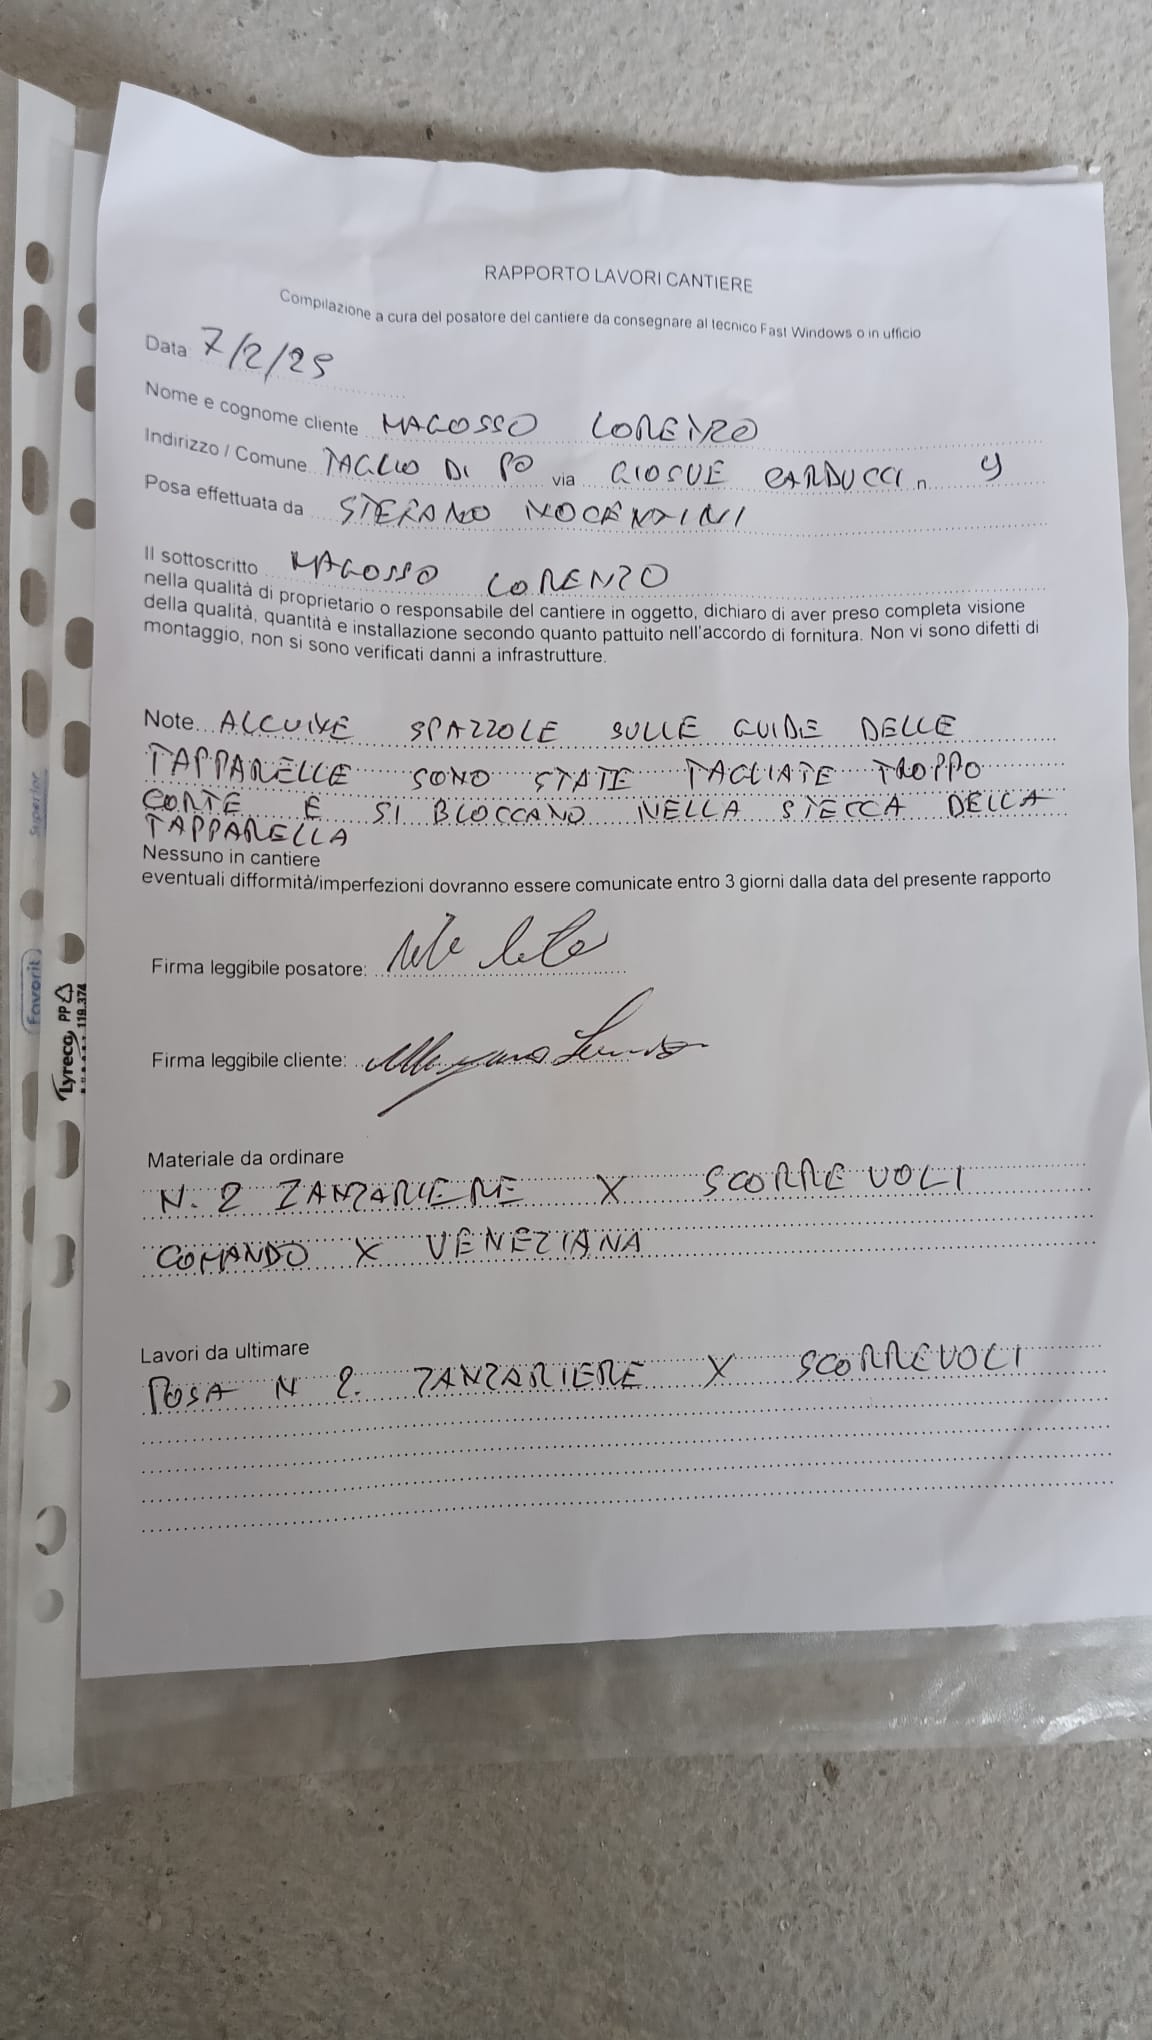 RAPPORTO LAVORI CANTIERE
Compilazione a cura del posatore del cantiere da consegnare al tecnico Fast Windows o in ufficio
Data 7/2/25
Nome e cognome cliente MAGOSSO LORENZO
Indirizzo / Comune TAGLIO DI PO via GIOSUE CARDUCCI n.
Posa effettuata da STEFANO NOCENTINI
Il sottoscritto MAGOSSO LORENZO
nella qualità di proprietario o responsabile del cantiere in oggetto, dichiaro di aver preso completa visione
della qualità, quantità e installazione secondo quanto pattuito nell'accordo di fornitura. Non vi sono difetti di
montaggio, non si sono verificati danni a infrastrutture.
Note ALCUNE SPAZZOLE SULLE GUIDE DELLE
TAPPARELLE SONO STATE TAGLIATE TROPPO
CORTE E SI BLOCCANO NELLA STECCA DELLA
TAPPARELLA
Nessuno in cantiere
eventuali difformità/imperfezioni dovranno essere comunicate entro 3 giorni dalla data del presente rapporto
Firma leggibile posatore:
Firma leggibile cliente:
Materiale da ordinare
N. 2 ZANZARIERE X SCORREVOLI
COMANDO X VENEZIANA
Lavori da ultimare
POSA N 2. ZANZARIERE X SCORREVOLI
Superior
Favorit
Lyreco PP
119.374